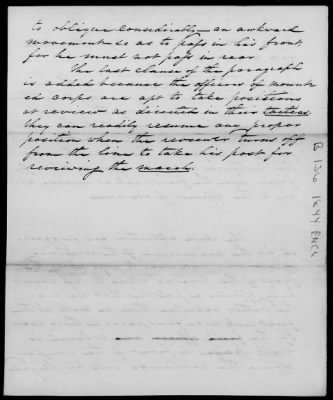 to oblique considerably – an awkward
movement so as to pass in his front
for he must not pass in rear.
The last clause of the paragraph
is added because the officers of mount
ed corps are apt to take positions
at review as directed in their tactics.
they can readily resume any proper
position when the reviewer turns off
from the line to take his post for
reviewing the march.
B 136 1844 ENCL